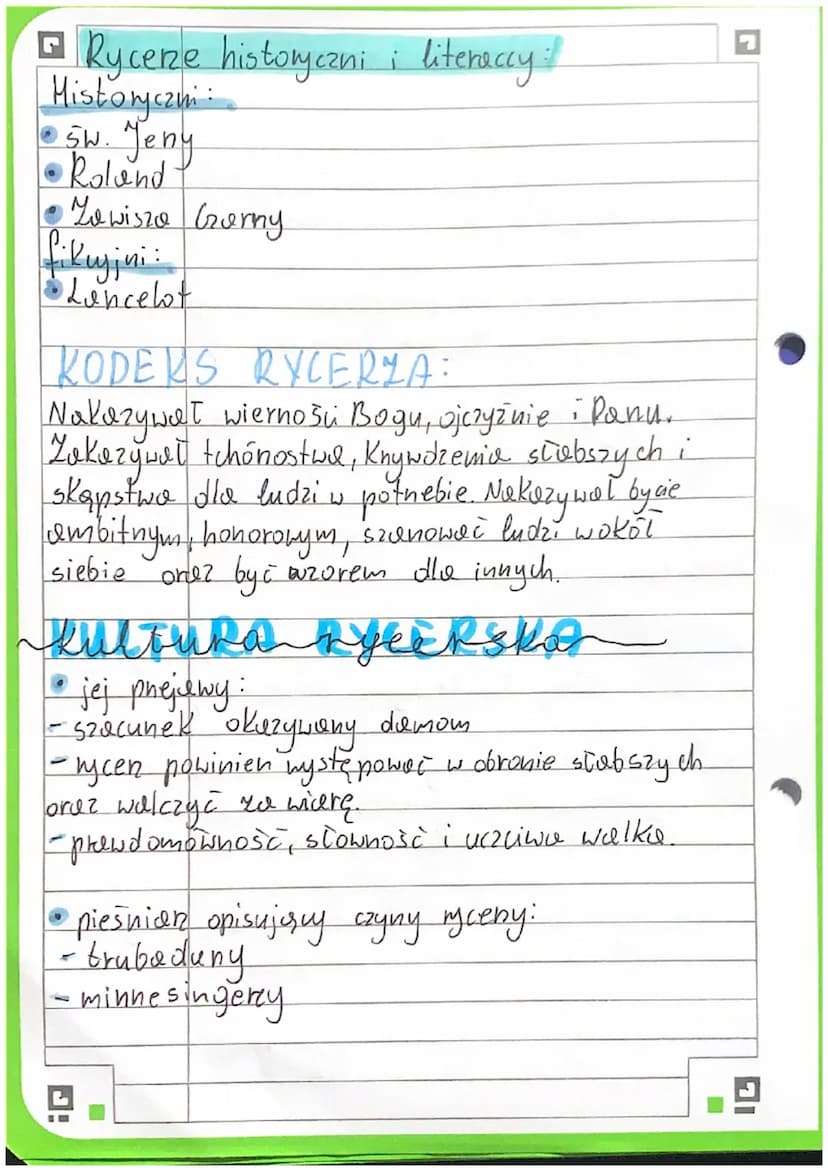 Rycerze historyczni i literaccy:
Historyczni:
• św. Jerzy
• Roland
• Zawisza Czarny
fikcyjni:
• Lancelot
KODEKS RYCERZA:
Nakazywał wierności Bogu, ojczyźnie i Panu.
Zakazywał tchórzostwa, krzywdzenia słabszych i
skąpstwa dla ludzi w potrzebie. Nakazywał bycie
ambitnym, honorowym, szanować ludzi wokół
siebie oraz być wzorem dla innych.
KULTURA RYCERSKA
• jej przejawy:
- szacunek okazywany damom
- rycerz powinien występować w obronie słabszych
oraz walczyć za wiarę.
- prawdomówność, słowność i uczciwa walka.
• pieśniarz opisujący czyny rycerzy:
- trubadurzy
- minnesingerzy